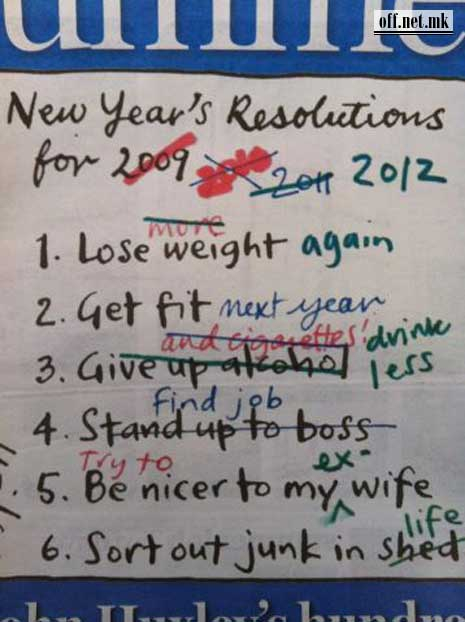 off.net.mk
New Year's Resolutions
for 2009 2011 2012
more
1. Lose weight again
2. Get fit next year
and cigarettes! drink
3. Give up alcohol less
find job
4. Stand up to boss
Try to ex-
5. Be nicer to my wife
life
6. Sort out junk in shed
John Huxley's hundre